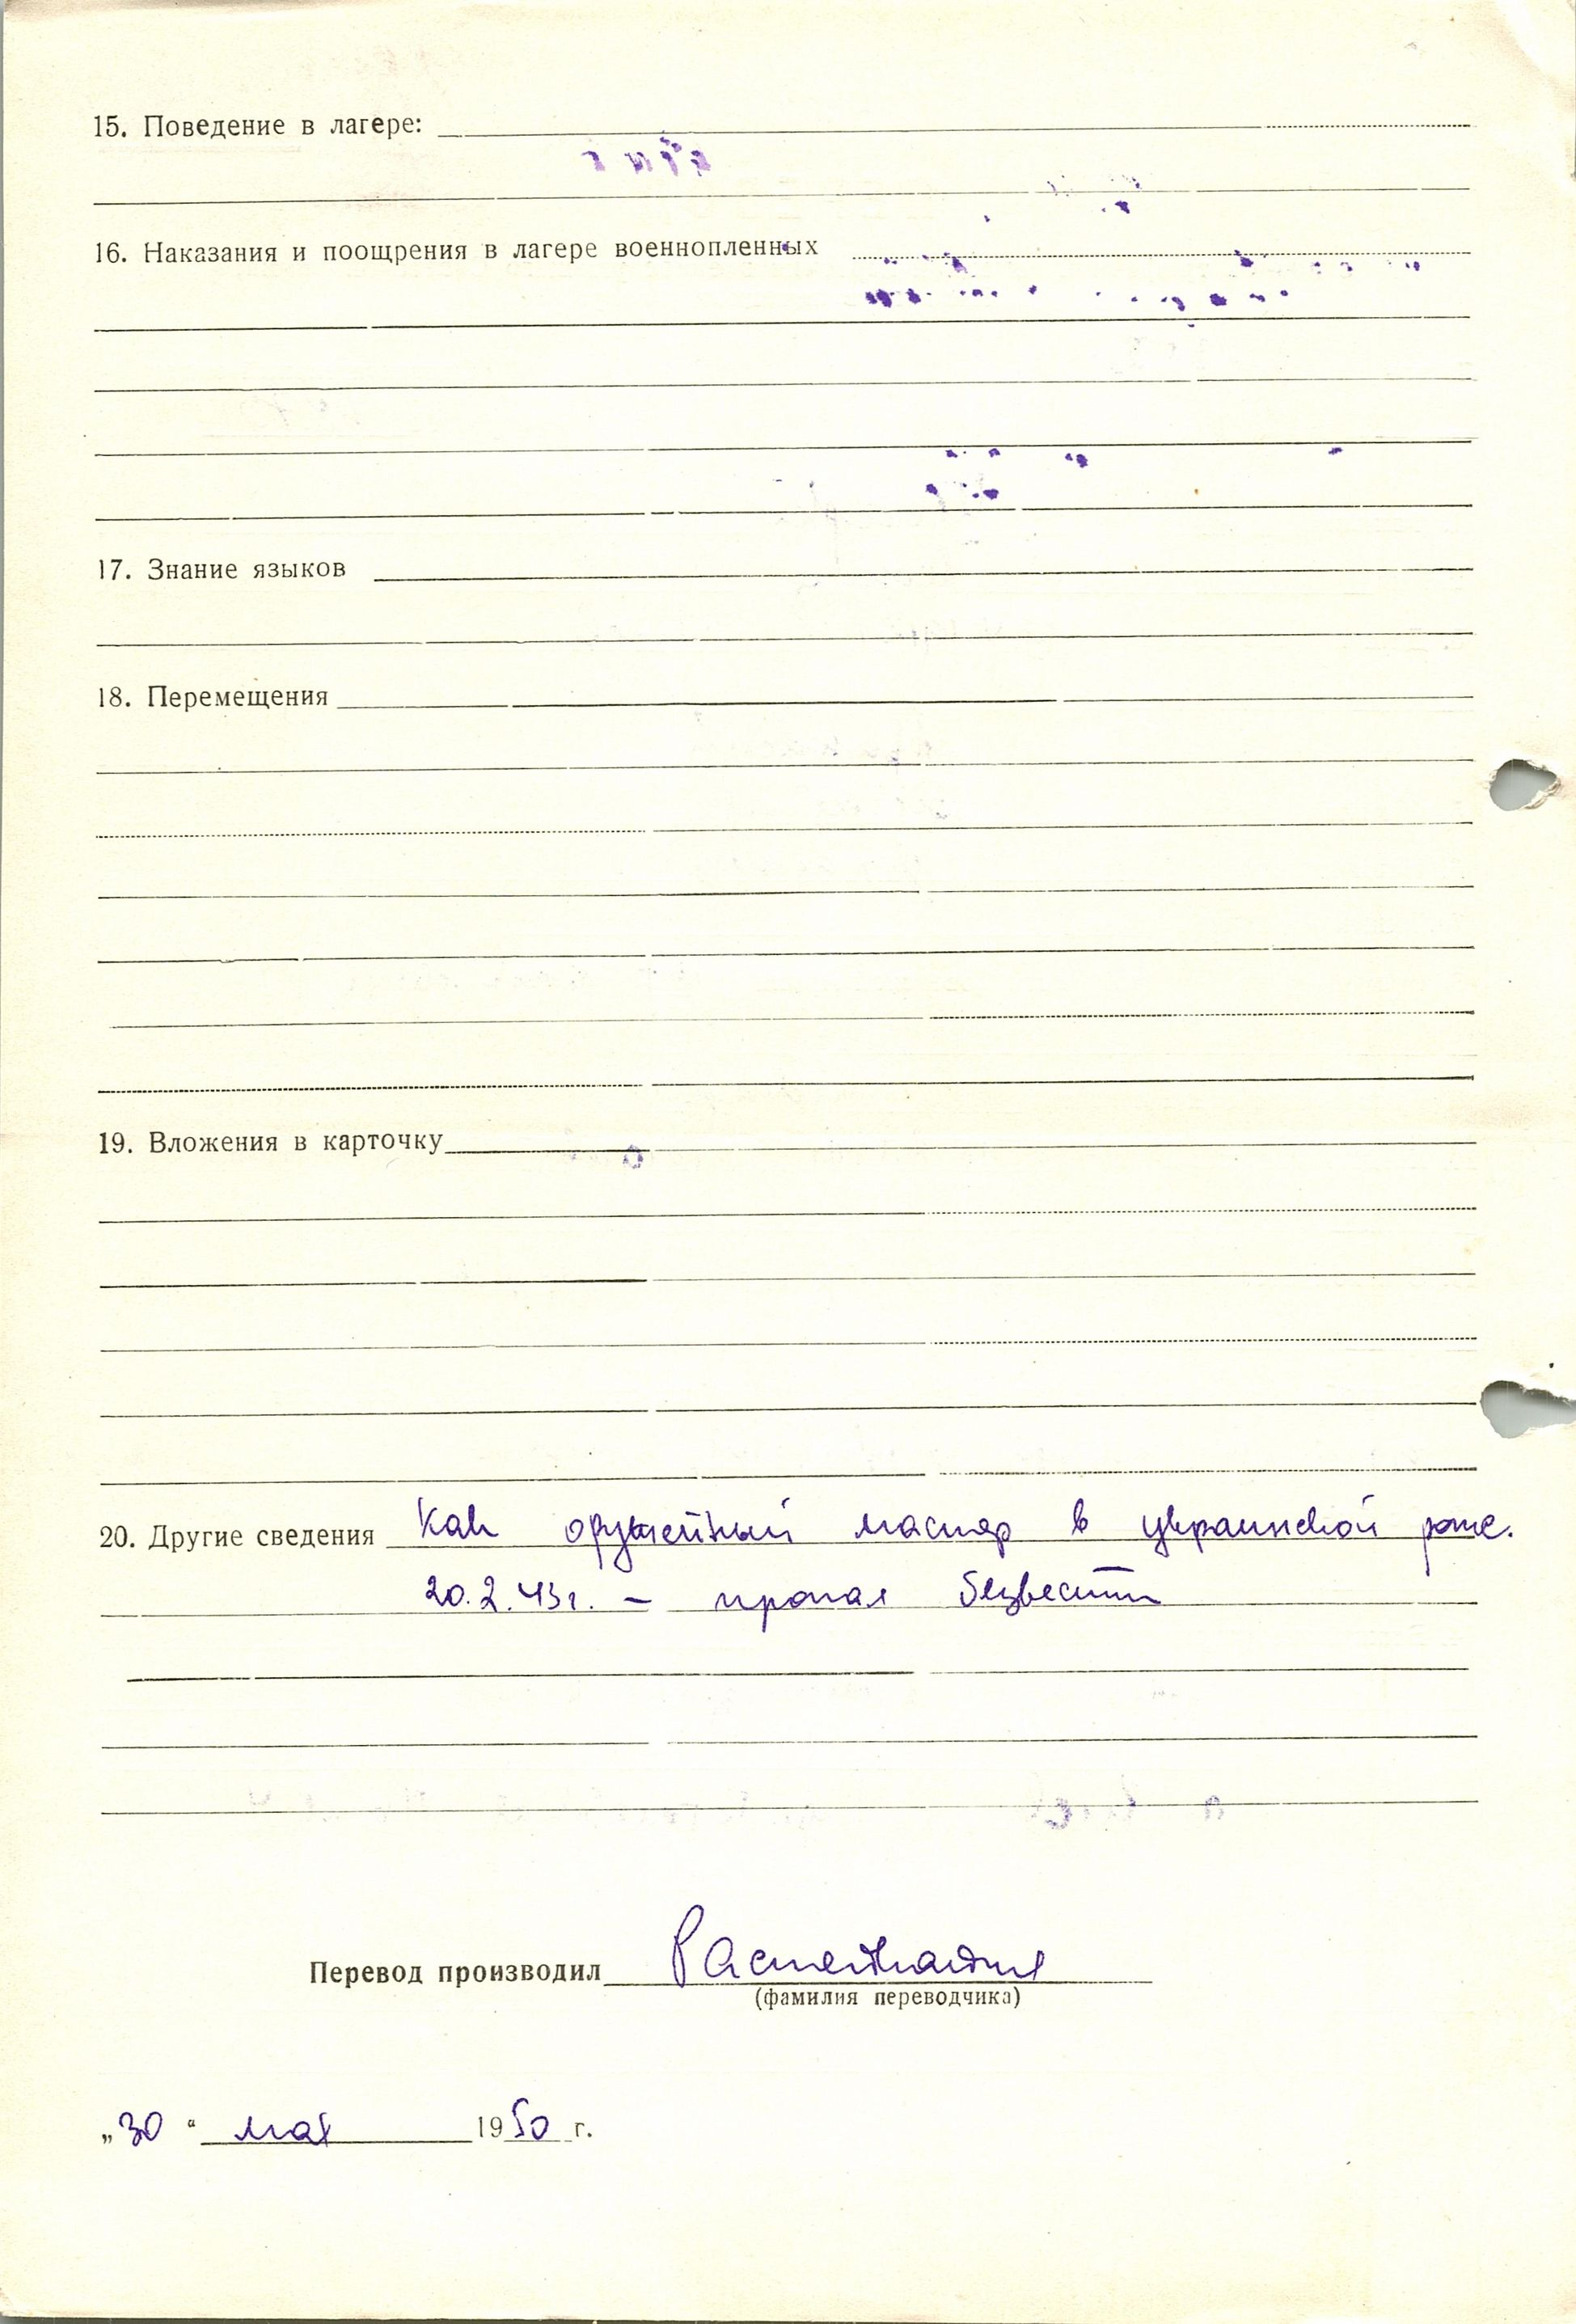 15. Поведение в лагере:
16. Наказания и поощрения в лагере военнопленных
17. Знание языков
18. Перемещения
19. Вложения в карточку
20. Другие сведения Как оружейный мастер в украинской роте.
20.2.43г. – пропал безвести
Перевод производил
(фамилия переводчика)
„30“ мая 1950 г.